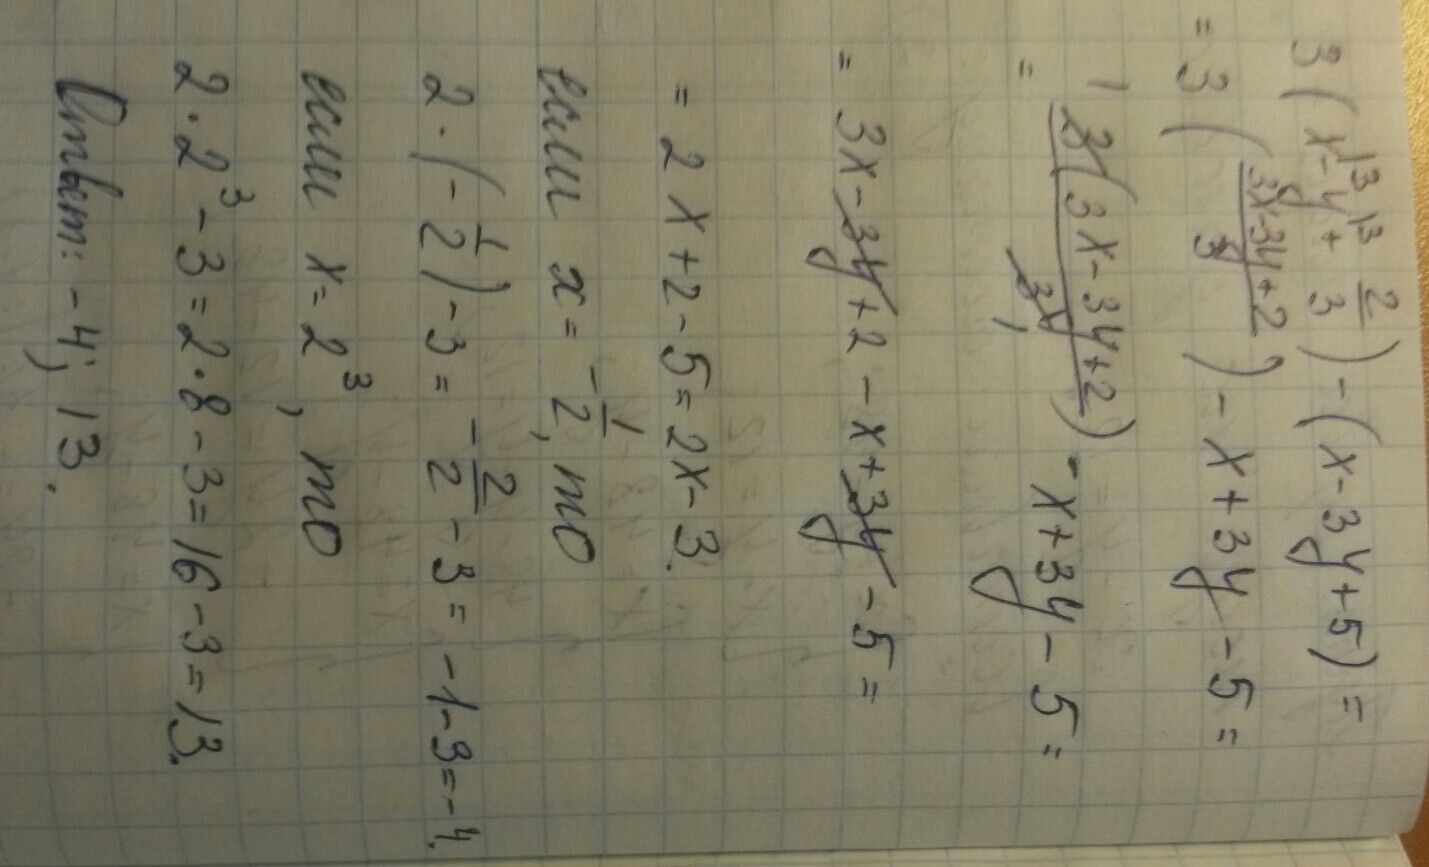 3(x - y + 2/3) - (x - 3y + 5) =
= 3((3x - 3y + 2)/3) - x + 3y - 5 =
= 3(3x - 3y + 2)/3 - x + 3y - 5 =
= 3x - 3y + 2 - x + 3y - 5 =
= 2x + 2 - 5 = 2x - 3.
если x = -1/2, то
2 · (-1/2) - 3 = -2/2 - 3 = -1 - 3 = -4.
если x = 2³, то
2 · 2³ - 3 = 2 · 8 - 3 = 16 - 3 = 13.
Ответ: -4; 13.